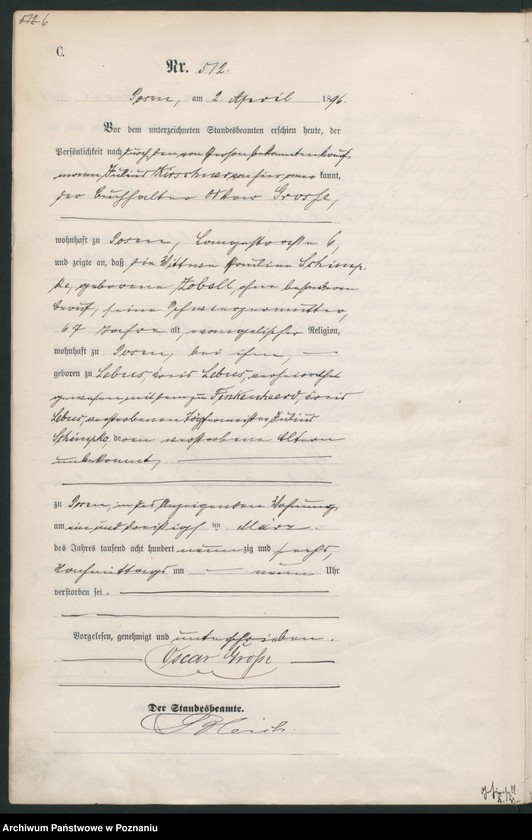 6
C.
Nr. 512.
Posen, am 2 April 1896.
Vor dem unterzeichneten Standesbeamten erschien heute, der
Persönlichkeit nach durch den von Person bekannten Kauf-
mann Julius Kirschner von hier aner kannt,
der Buchhalter Oskar Große,
wohnhaft zu Posen, Langestraße 6,
und zeigte an, daß die Wittwe Pauline Schimp-
ke, geborene Zobell, ohne besonderen
Beruf, seine Schwiegermutter,
67 Jahre alt, evangelischer Religion,
wohnhaft zu Posen, bei ihm,
geboren zu Lebus, Kreis Lebus, verheirathet
gewesen mit dem zu Finkenheerd, Kreis
Lebus, verstorbenen Töpfermeister Julius
Schimpke, deren verstorbene Eltern
unbekannt,
zu Posen, in des Anzeigenden Wohnung,
am ein und dreißigsten März
des Jahres tausend acht hundert neunzig und sechs,
Nachmittags um neun Uhr
verstorben sei.
Vorgelesen, genehmigt und unterschrieben.
Oscar Große
Der Standesbeamte.
Archiwum Państwowe w Poznaniu